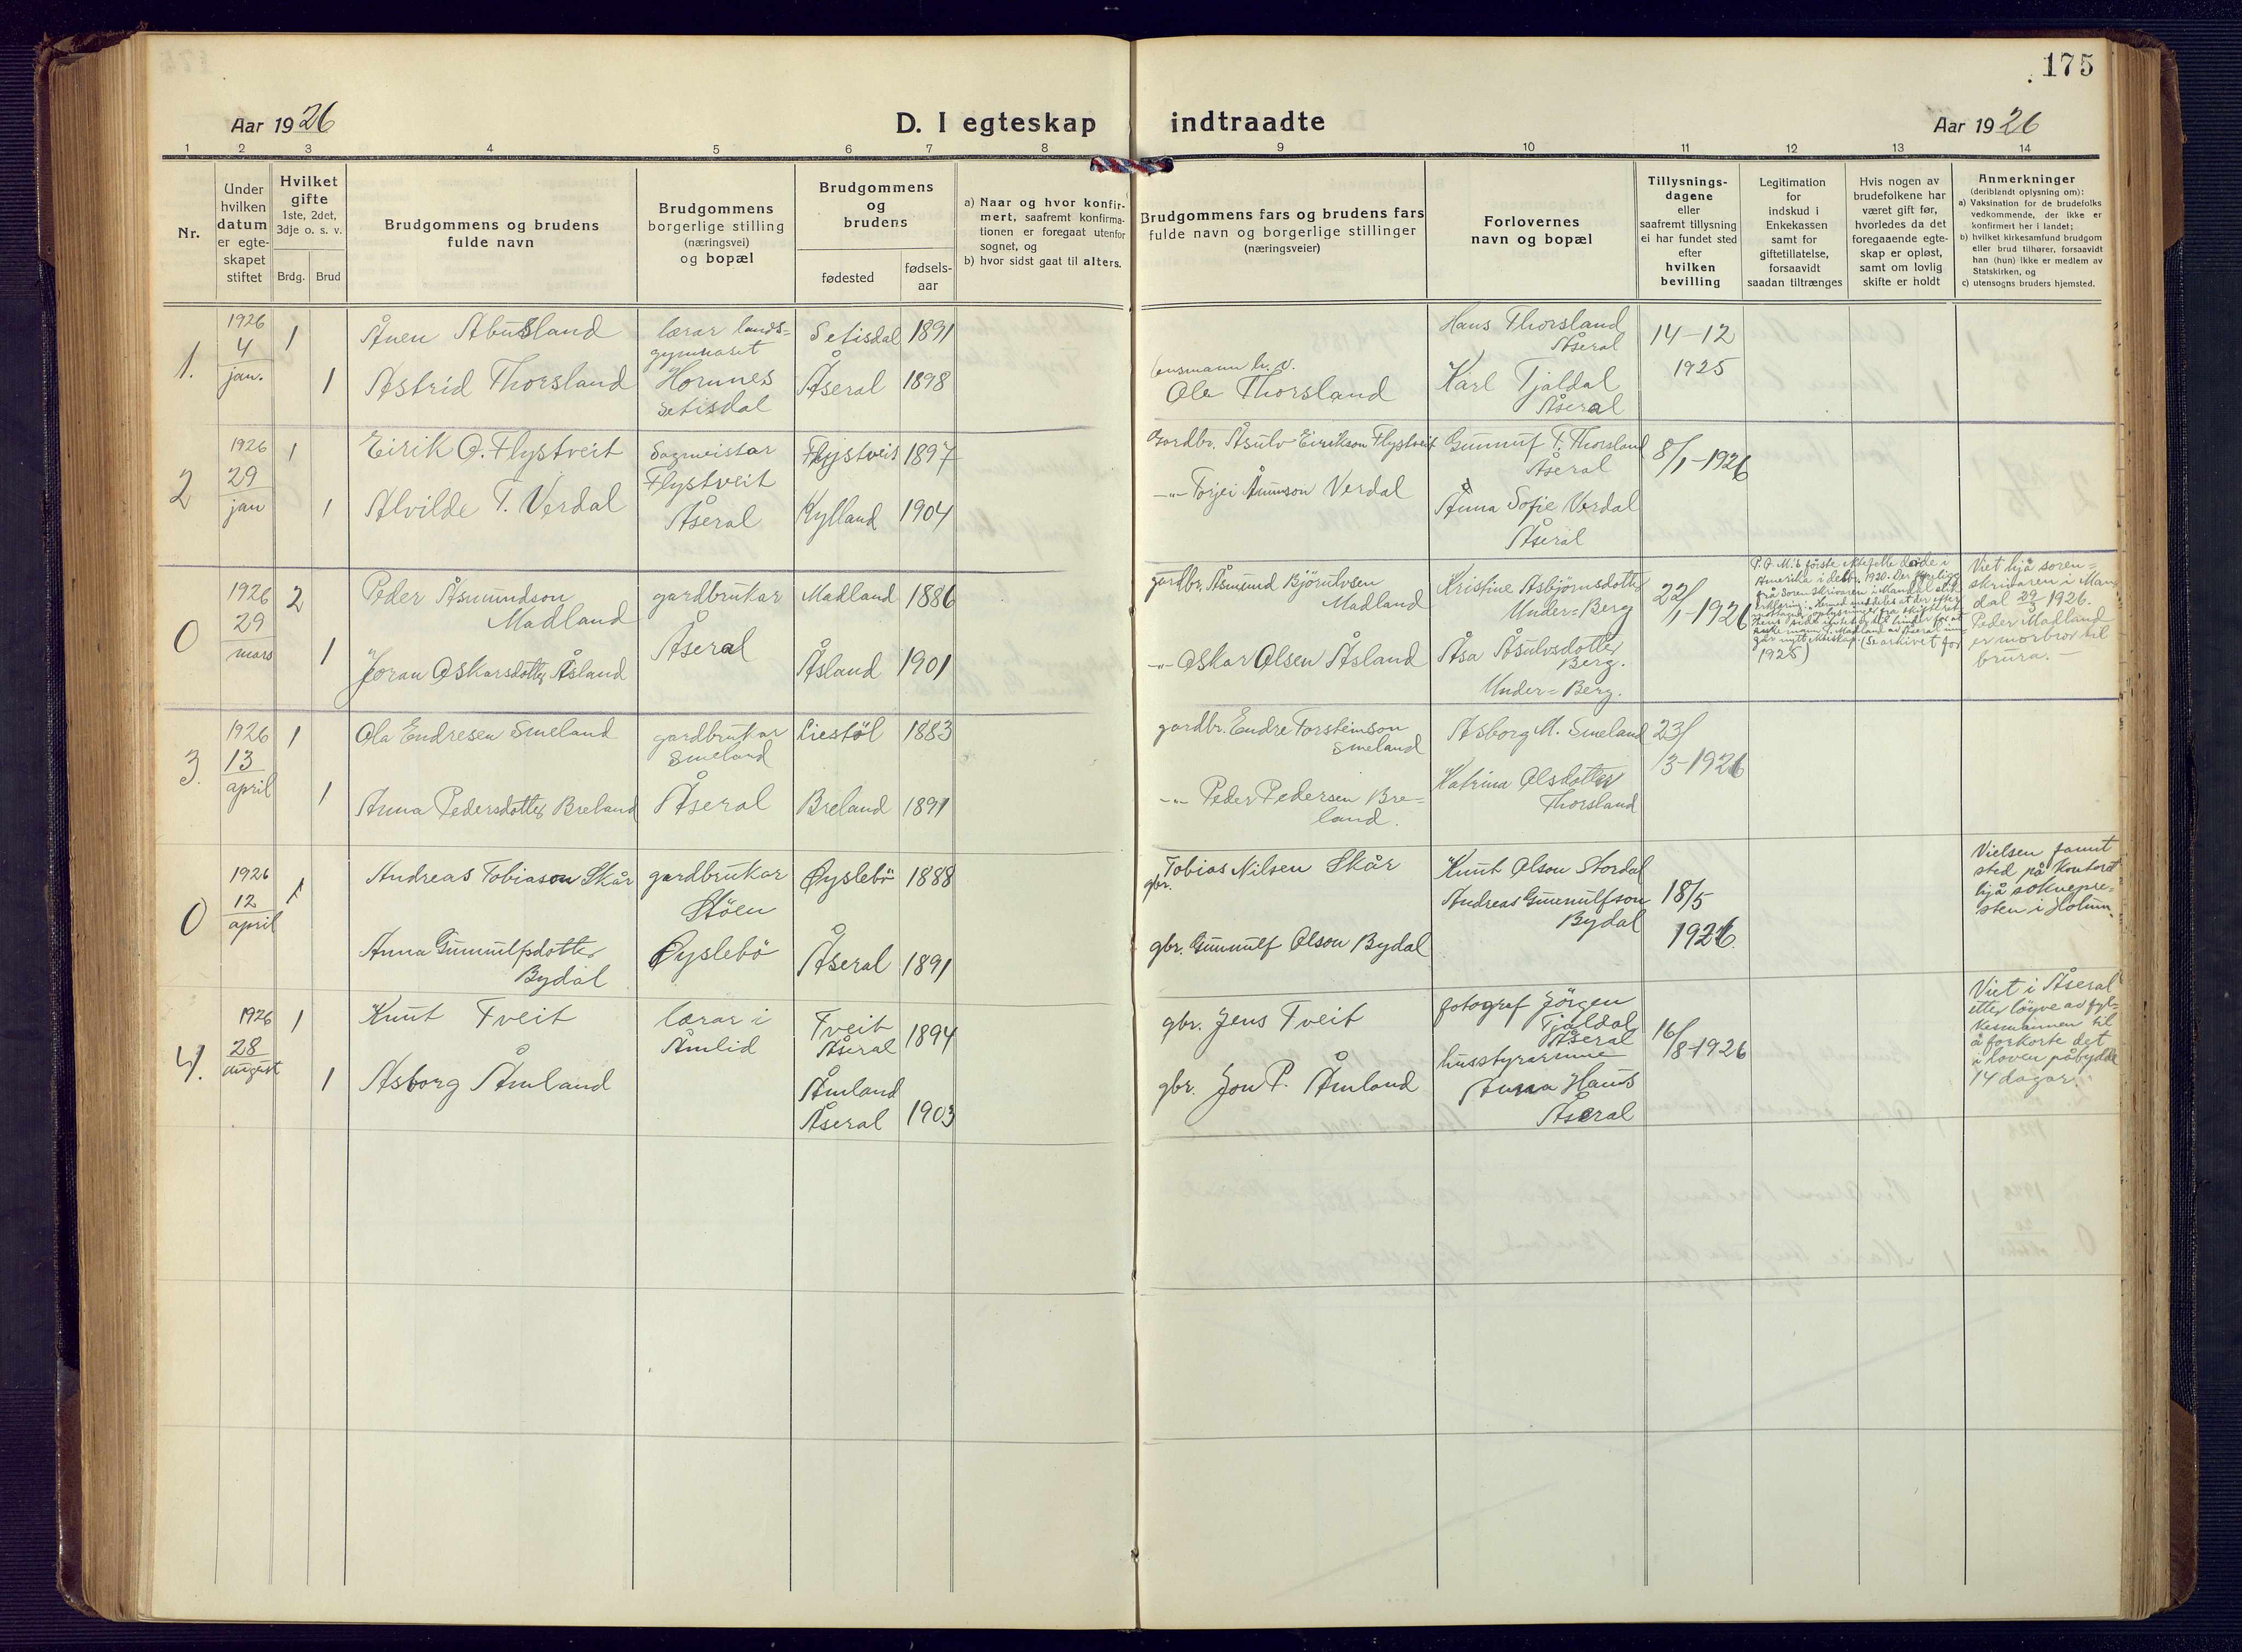 175
Aar 1926
D. I egteskap indtraadte
Aar 1926
1 2 3 4 5 6 7 8 9 10 11 12 13 14
Nr.
Under
hvilken
datum
er egte-
skapet
stiftet
Hvilket
gifte
1ste, 2det,
3dje o. s. v.
Brdg. Brud
Brudgommens og brudens
fulde navn
Brudgommens
borgerlige stilling
(næringsvei)
og bopæl
Brudgommens
og
brudens
fødested
fødsels-
aar
a) Naar og hvor konfir-
mert, saafremt konfirma-
tionen er foregaat utenfor
sognet, og
b) hvor sidst gaat til alters.
Brudgommens fars og brudens fars
fulde navn og borgerlige stillinger
(næringsveier)
Forlovernes
navn og bopæl
Tillysnings-
dagene
eller
saafremt tillysning
ei har fundet sted
efter
hvilken
bevilling
Legitimation
for
indskud i
Enkekassen
samt for
giftetillatelse,
forsaavidt
saadan tiltrænges
Hvis nogen av
brudefolkene har
været gift før,
hvorledes da det
foregaaende egte-
skap er opløst,
samt om lovlig
skifte er holdt
Anmerkninger
(deriblandt oplysning om):
a) Vaksination for de brudefolks
vedkommende, der ikke er
konfirmert her i landet;
b) hvilket kirkesamfund brudgom
eller brud tilhører, forsaavidt
han (hun) ikke er medlem av
Statskirken, og
c) utensogns bruders hjemsted.
1.
1926
4
jan.
1
1
Ånen Abusland
Astrid Thorsland
lærar lands-
gymnaset
Hornnes
Setisdal
Setisdal 1891
Åseral 1898
lensmann h. v.
Ole Thorsland
Hans Thorsland
Åseral
Karl Tjaldal
Åseral
14-12
1925
2
1926
29
jan
1
1
Eirik O. Flystveit
Alvilde T. Verdal
Sagmeistar
Flystveit
Åseral
Flystveit 1897
Kylland 1904
Gardbr. Åsulv Eirikson Flystveit
-"- Torjei Ånunson Verdal
Gunnuf T. Thorsland
Åseral
Anna Sofie Verdal
Åseral
8/1-1926
0
1926
29
mars
2
1
Peder Åsmundson
Madland
Joran Oskarsdotter Åsland
gardbrukar
Åseral
Madland 1886
Åsland 1901
gardbr. Åsmund Björnulvsen
Madland
-"- Oskar Olsen Åsland
Kristine Asbjörnsdotter
Under-Berg
Åsa Åsulvsdotter
Berg.
Under-Berg.
22/1-1926
P. Å. M.'s förste ektefelle döde i
Amerika i 1920.
1925)
Viet hjå soren-
skrivaren i Man
dal 29/3 1926.
Peder Madland
er morbror til
brura. -
3.
1926
13
april
1
1
Ola Endresen Smeland
Anna Pedersdotter Breland
gardbrukar
Smeland
Åseral
Liestöl 1883
Breland 1891
gardbr. Endre Torsteinson
Smeland
-"- Peder Pedersen Bre-
land.
Asborg M. Smeland
Katrina Olsdotter
Thorsland
23/
/3-1926
0
1926
12
april
1
Andreas Tobiason Skår
Anna Gunnulfsdotter
Bydal
gardbrukar
Stöen
Öyslebö
Öyslebö 1888
Åseral 1891
gbr. Tobias Nilsen Skår
gbr. Gunnulf Olson Bydal
Knut Olson Stordal
Andreas Gunnulfson
Bydal
18/5
1926.
Vielsen fannt
sted på kontoret
hjå soknepre-
sten i Holum.
4.
1926
28
august
1
1
Knut Tveit
Asborg Åmland
lærar i
Åmlid
Tveit
Åseral 1894
Åmland
Åseral 1903
gbr. Jens Tveit
gbr. Jon P. Åmland
fotograf Jörgen
Tjaldal
Åseral
husstyrarinne
Anna Haus
Åseral
16/
/8-1926
Viet i Åseral
etter löyve av fyl-
kesmannen til
å forkorte det
i loven påbydde
14 dagar.